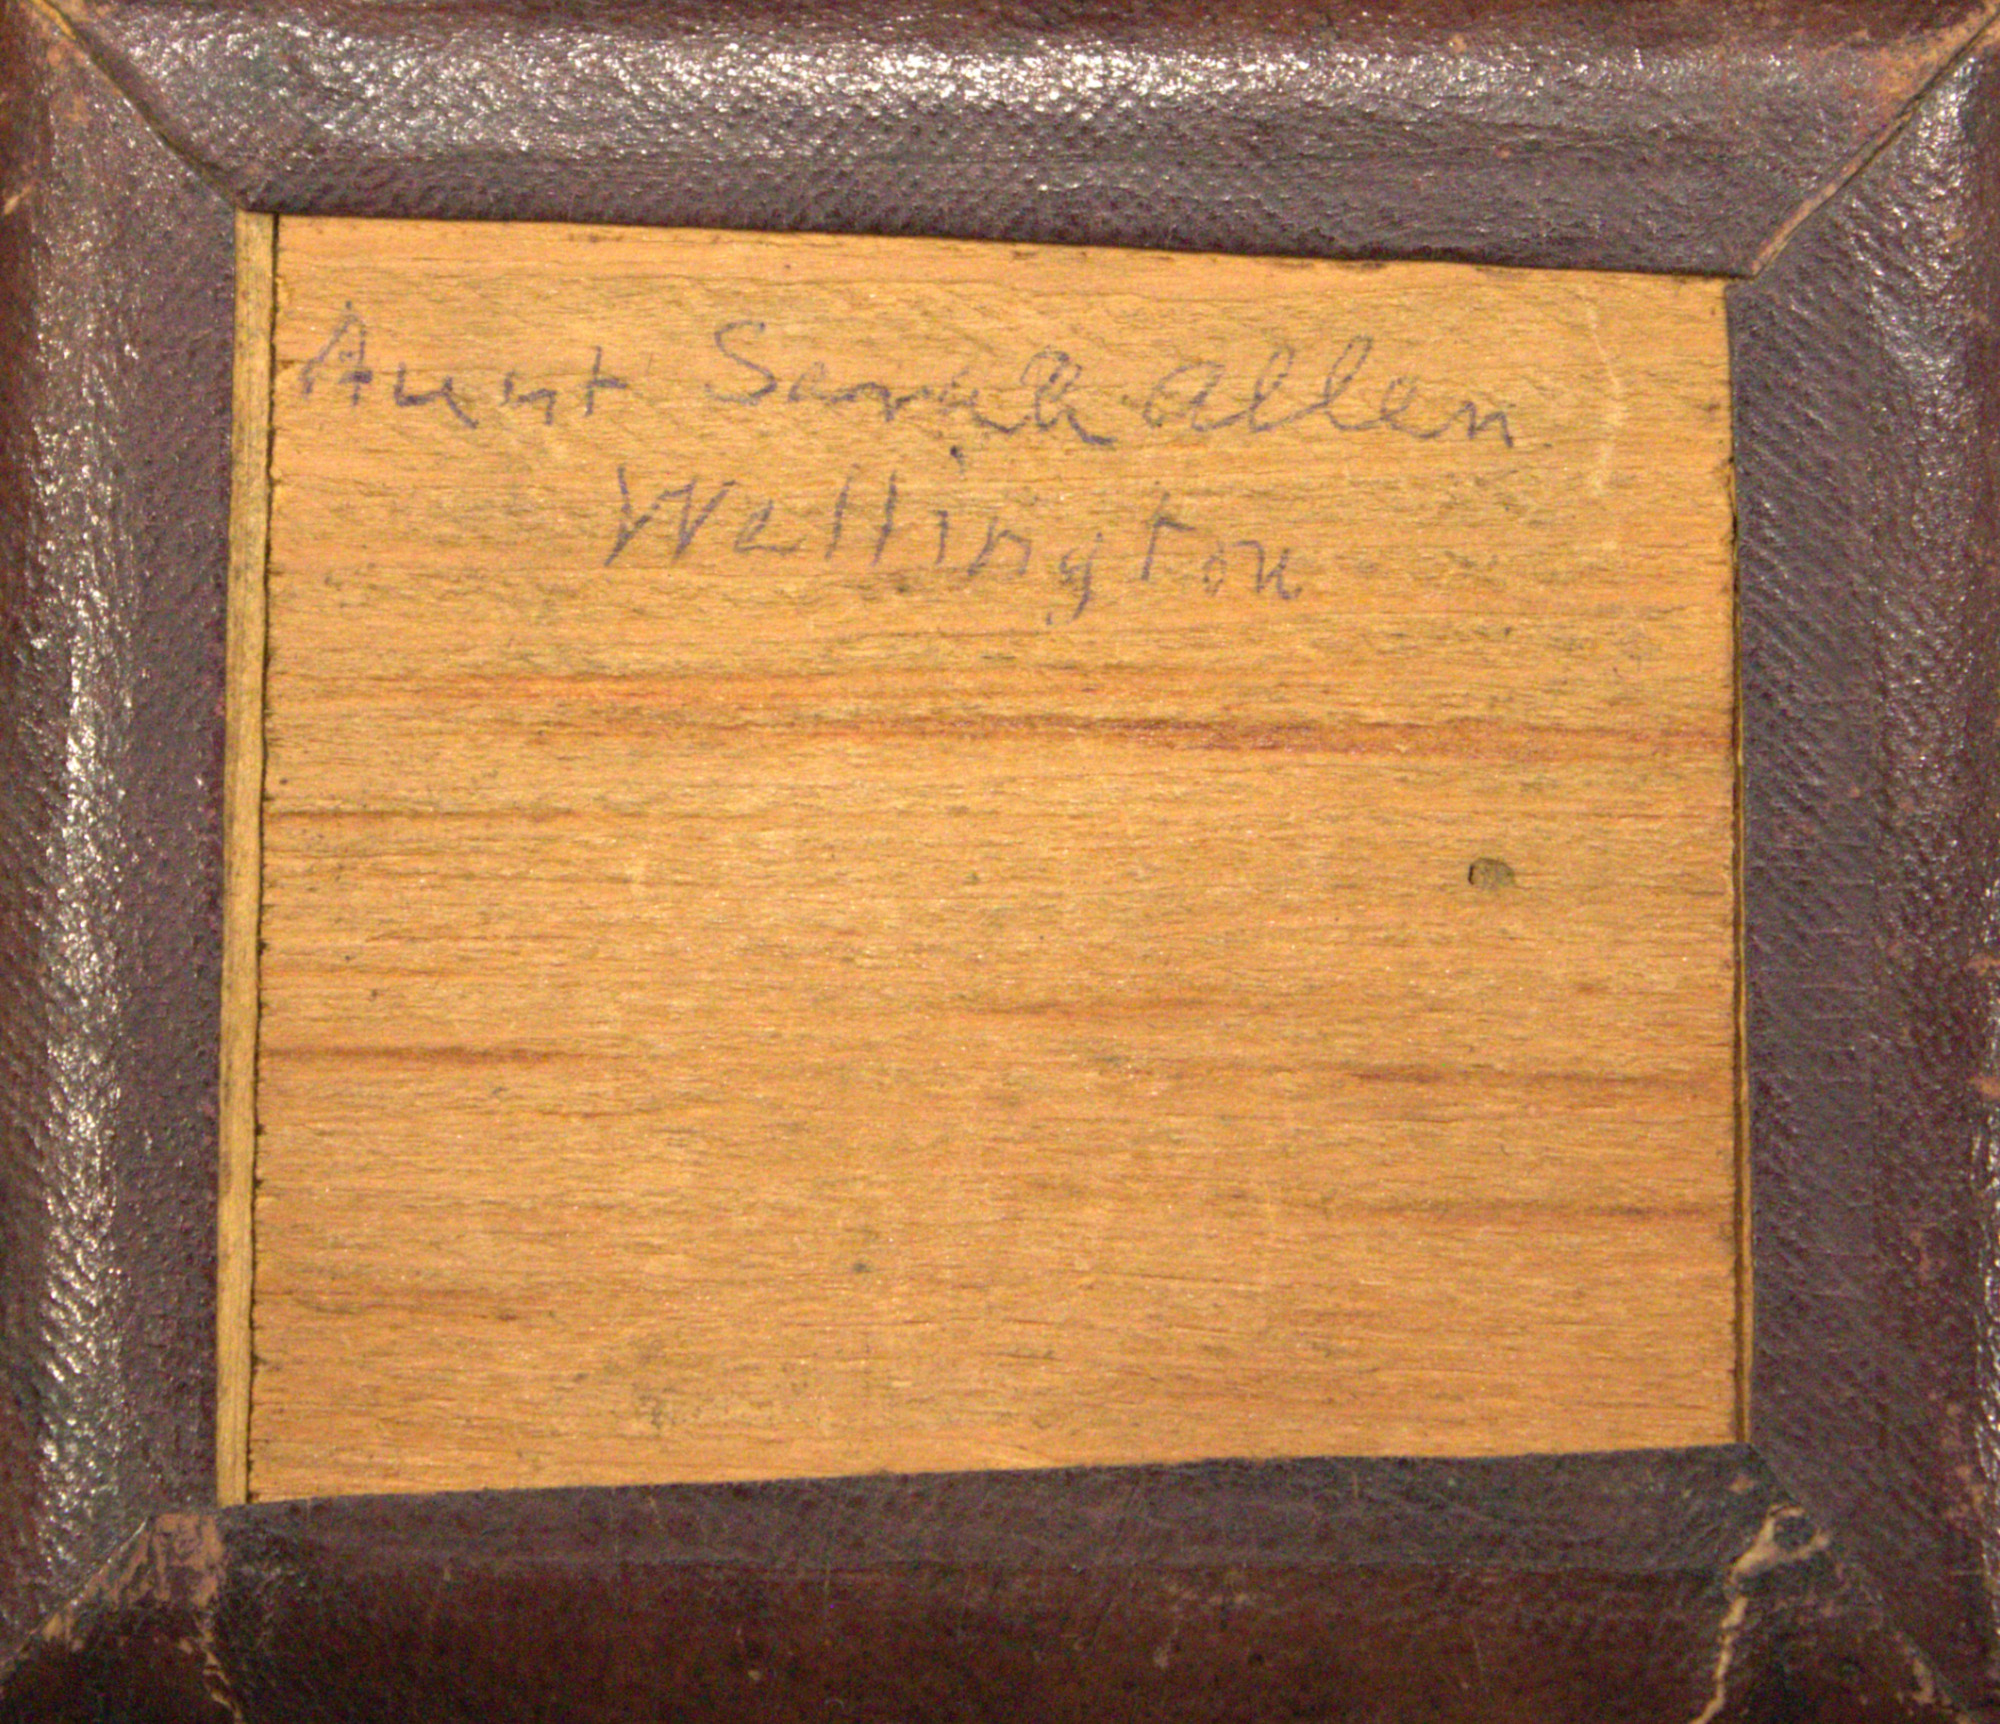 Aunt Sarah Allen
Wellington